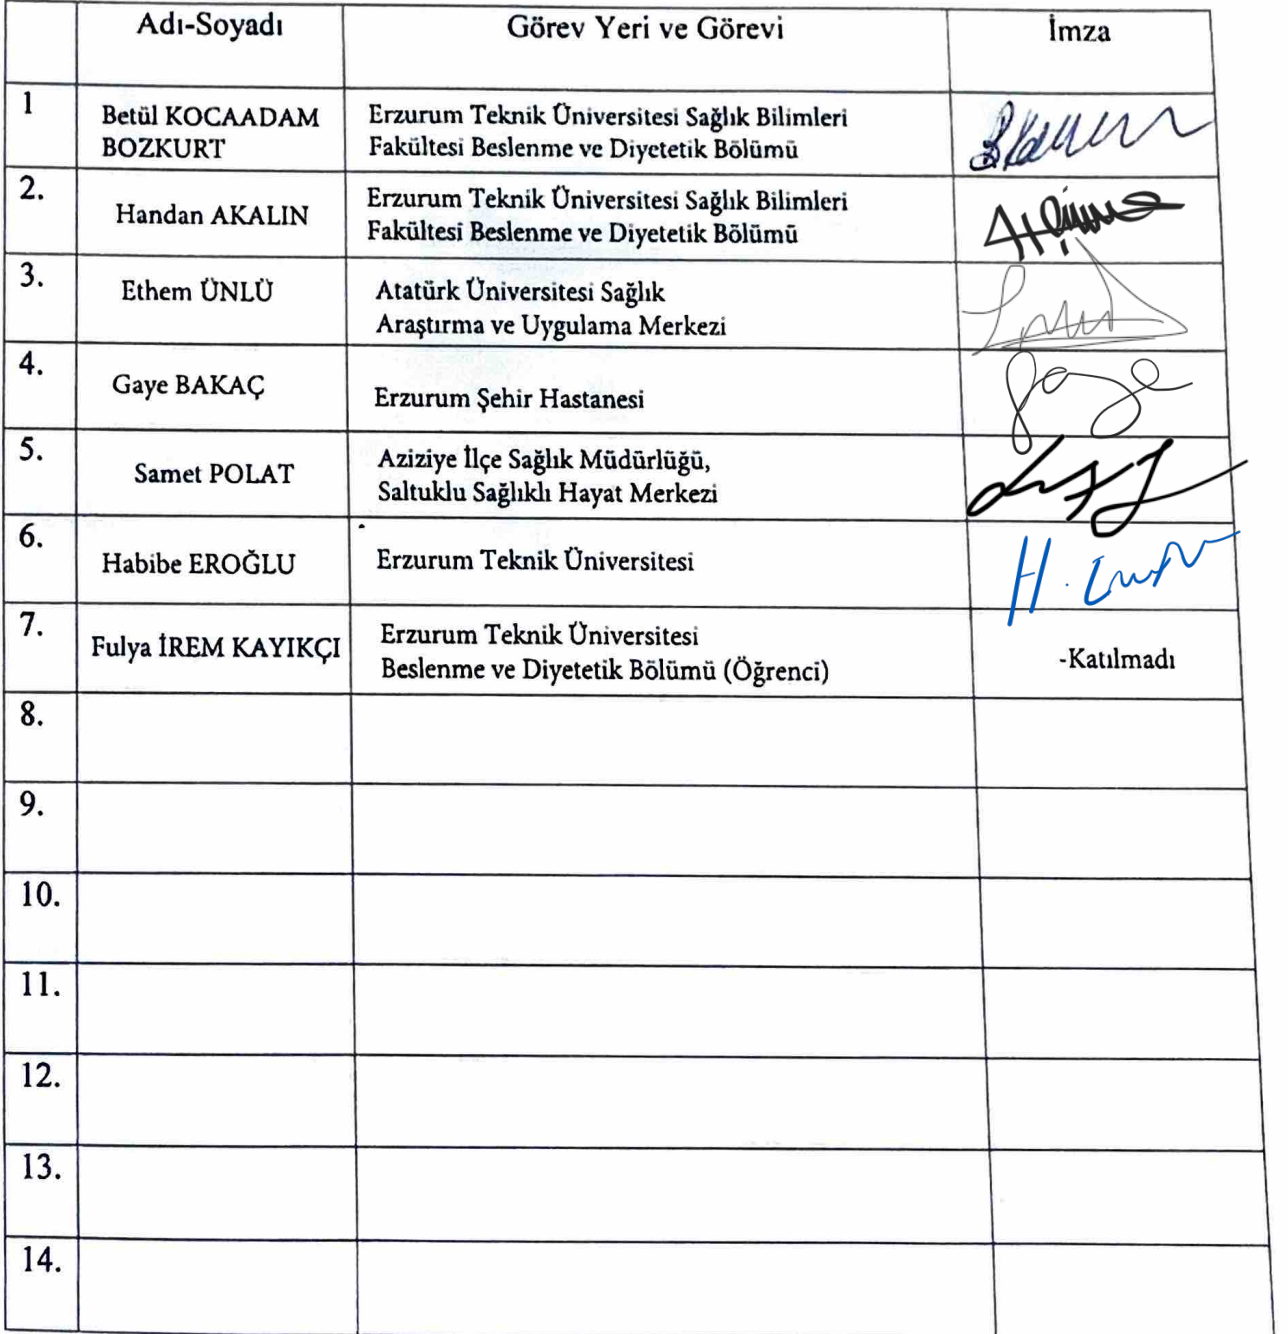 Adı-Soyadı Görev Yeri ve Görevi İmza
1 Betül KOCAADAM Erzurum Teknik Üniversitesi Sağlık Bilimleri
BOZKURT Fakültesi Beslenme ve Diyetetik Bölümü
2. Handan AKALIN Erzurum Teknik Üniversitesi Sağlık Bilimleri
Fakültesi Beslenme ve Diyetetik Bölümü
3. Ethem ÜNLÜ Atatürk Üniversitesi Sağlık
Araştırma ve Uygulama Merkezi
4. Gaye BAKAÇ Erzurum Şehir Hastanesi
5. Samet POLAT Aziziye İlçe Sağlık Müdürlüğü,
Saltuklu Sağlıklı Hayat Merkezi
6. Habibe EROĞLU Erzurum Teknik Üniversitesi
7. Fulya İREM KAYIKÇI Erzurum Teknik Üniversitesi
Beslenme ve Diyetetik Bölümü (Öğrenci) -Katılmadı
8.
9.
10.
11.
12.
13.
14.